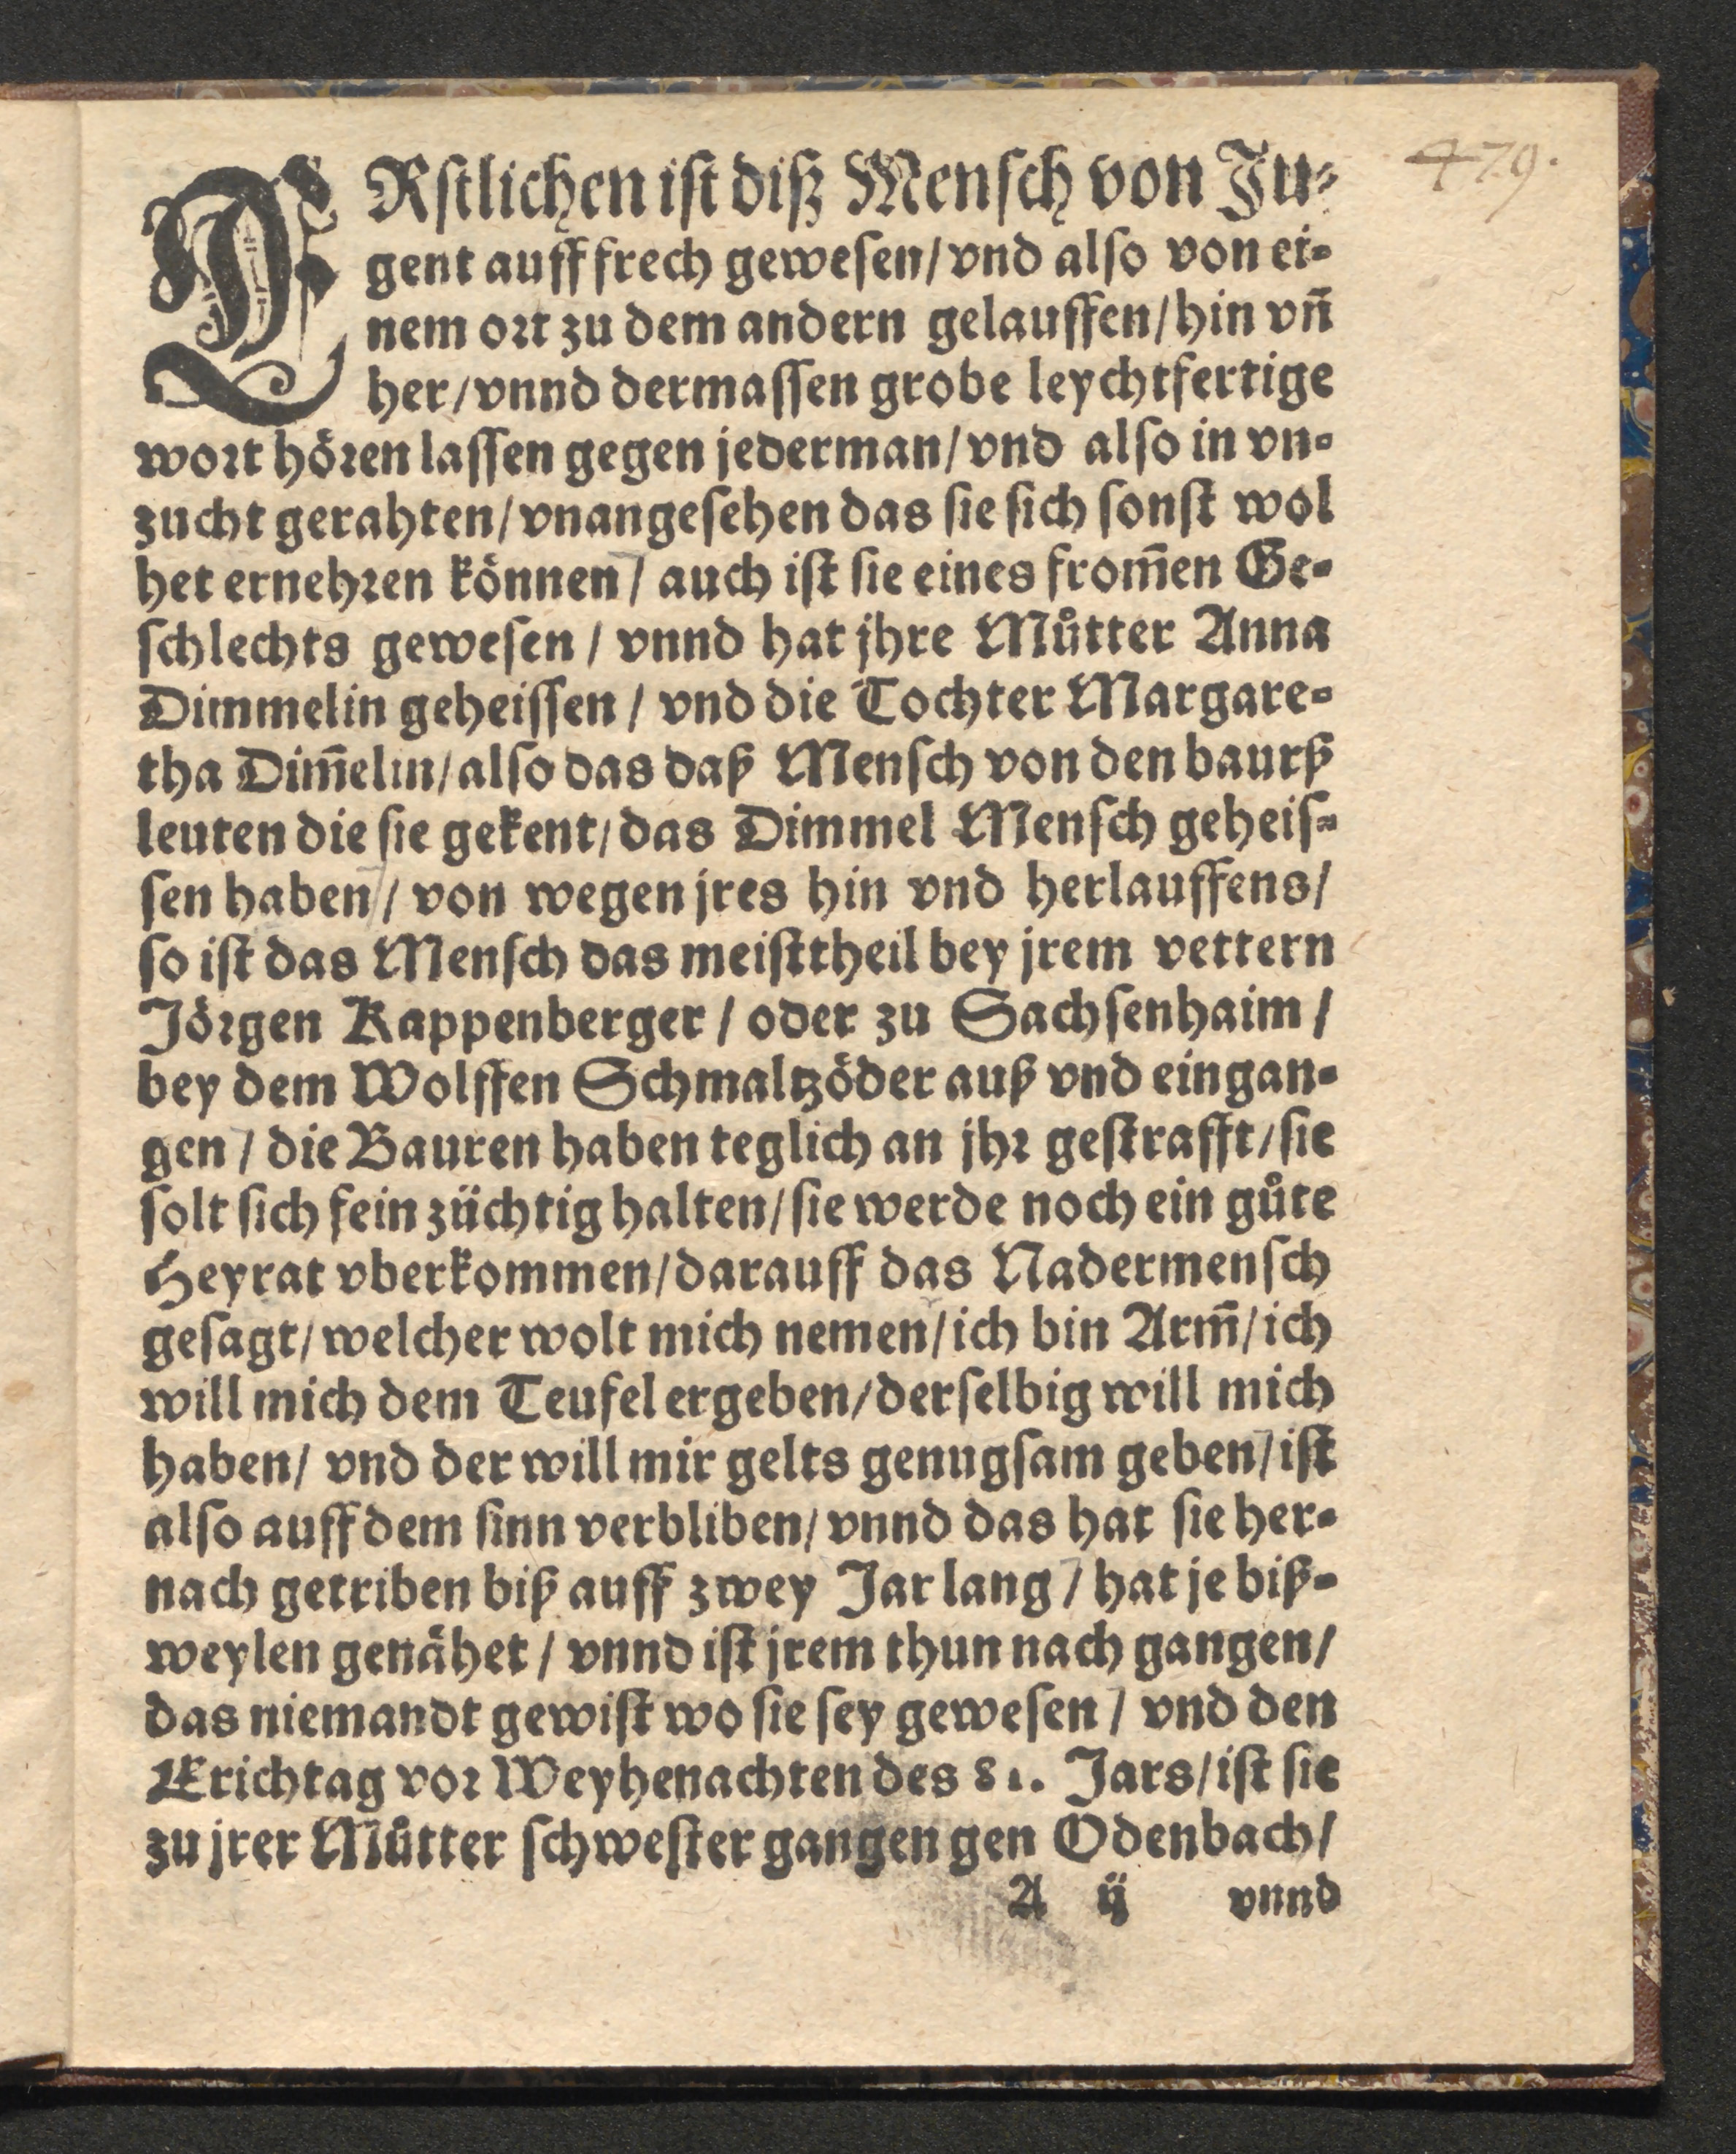 479.
ERſtlichen iſt diß Menſch von Ju⸗
gent auff frech geweſen/vnd alſo von ei⸗
nem ort zu dem andern gelauffen/hin vn̄
her/vnnd dermaſſen grobe leychtfertige
wort hören laſſen gegen jederman/vnd alſo in vn⸗
zucht gerahten/vnangeſehen das ſie ſich ſonſt wol
het ernehren können/ auch iſt ſie eines from̄en Ge⸗
ſchlechts geweſen / vnnd hat jhre Můtter Anna
Dimmelin geheiſſen / vnd die Tochter Margare⸗
tha Dim̄elin/alſo das daß Menſch von den baurß
leuten die ſie gekent/das Dimmel Menſch geheiſ⸗
ſen haben / von wegen jres hin vnd herlauffens/
ſo iſt das Menſch das meiſttheil bey jrem vettern
Jörgen Kappenberger / oder zu Sachſenhaim /
bey dem Wolffen Schmaltzöder auß vnd eingan⸗
gen / die Bauren haben teglich an jhr geſtrafft/ſie
ſolt ſich fein züchtig halten/ſie werde noch ein gůte
Heyrat vberkommen/darauff das Nadermenſch
geſagt/welcher wolt mich nemen/ich bin Arm̄/ich
will mich dem Teufel ergeben/derſelbig will mich
haben/ vnd der will mir gelts genugſam geben/iſt
alſo auff dem ſinn verbliben/vnnd das hat ſie her⸗
nach getriben biß auff zwey Jar lang / hat je biß⸗
weylen genähet / vnnd iſt jrem thun nach gangen/
das niemandt gewiſt wo ſie ſey geweſen / vnd den
Erichtag vor Weyhenachten des 81. Jars/iſt ſie
zu jrer Můtter ſchweſter gangen gen Odenbach/
A ij vnnd